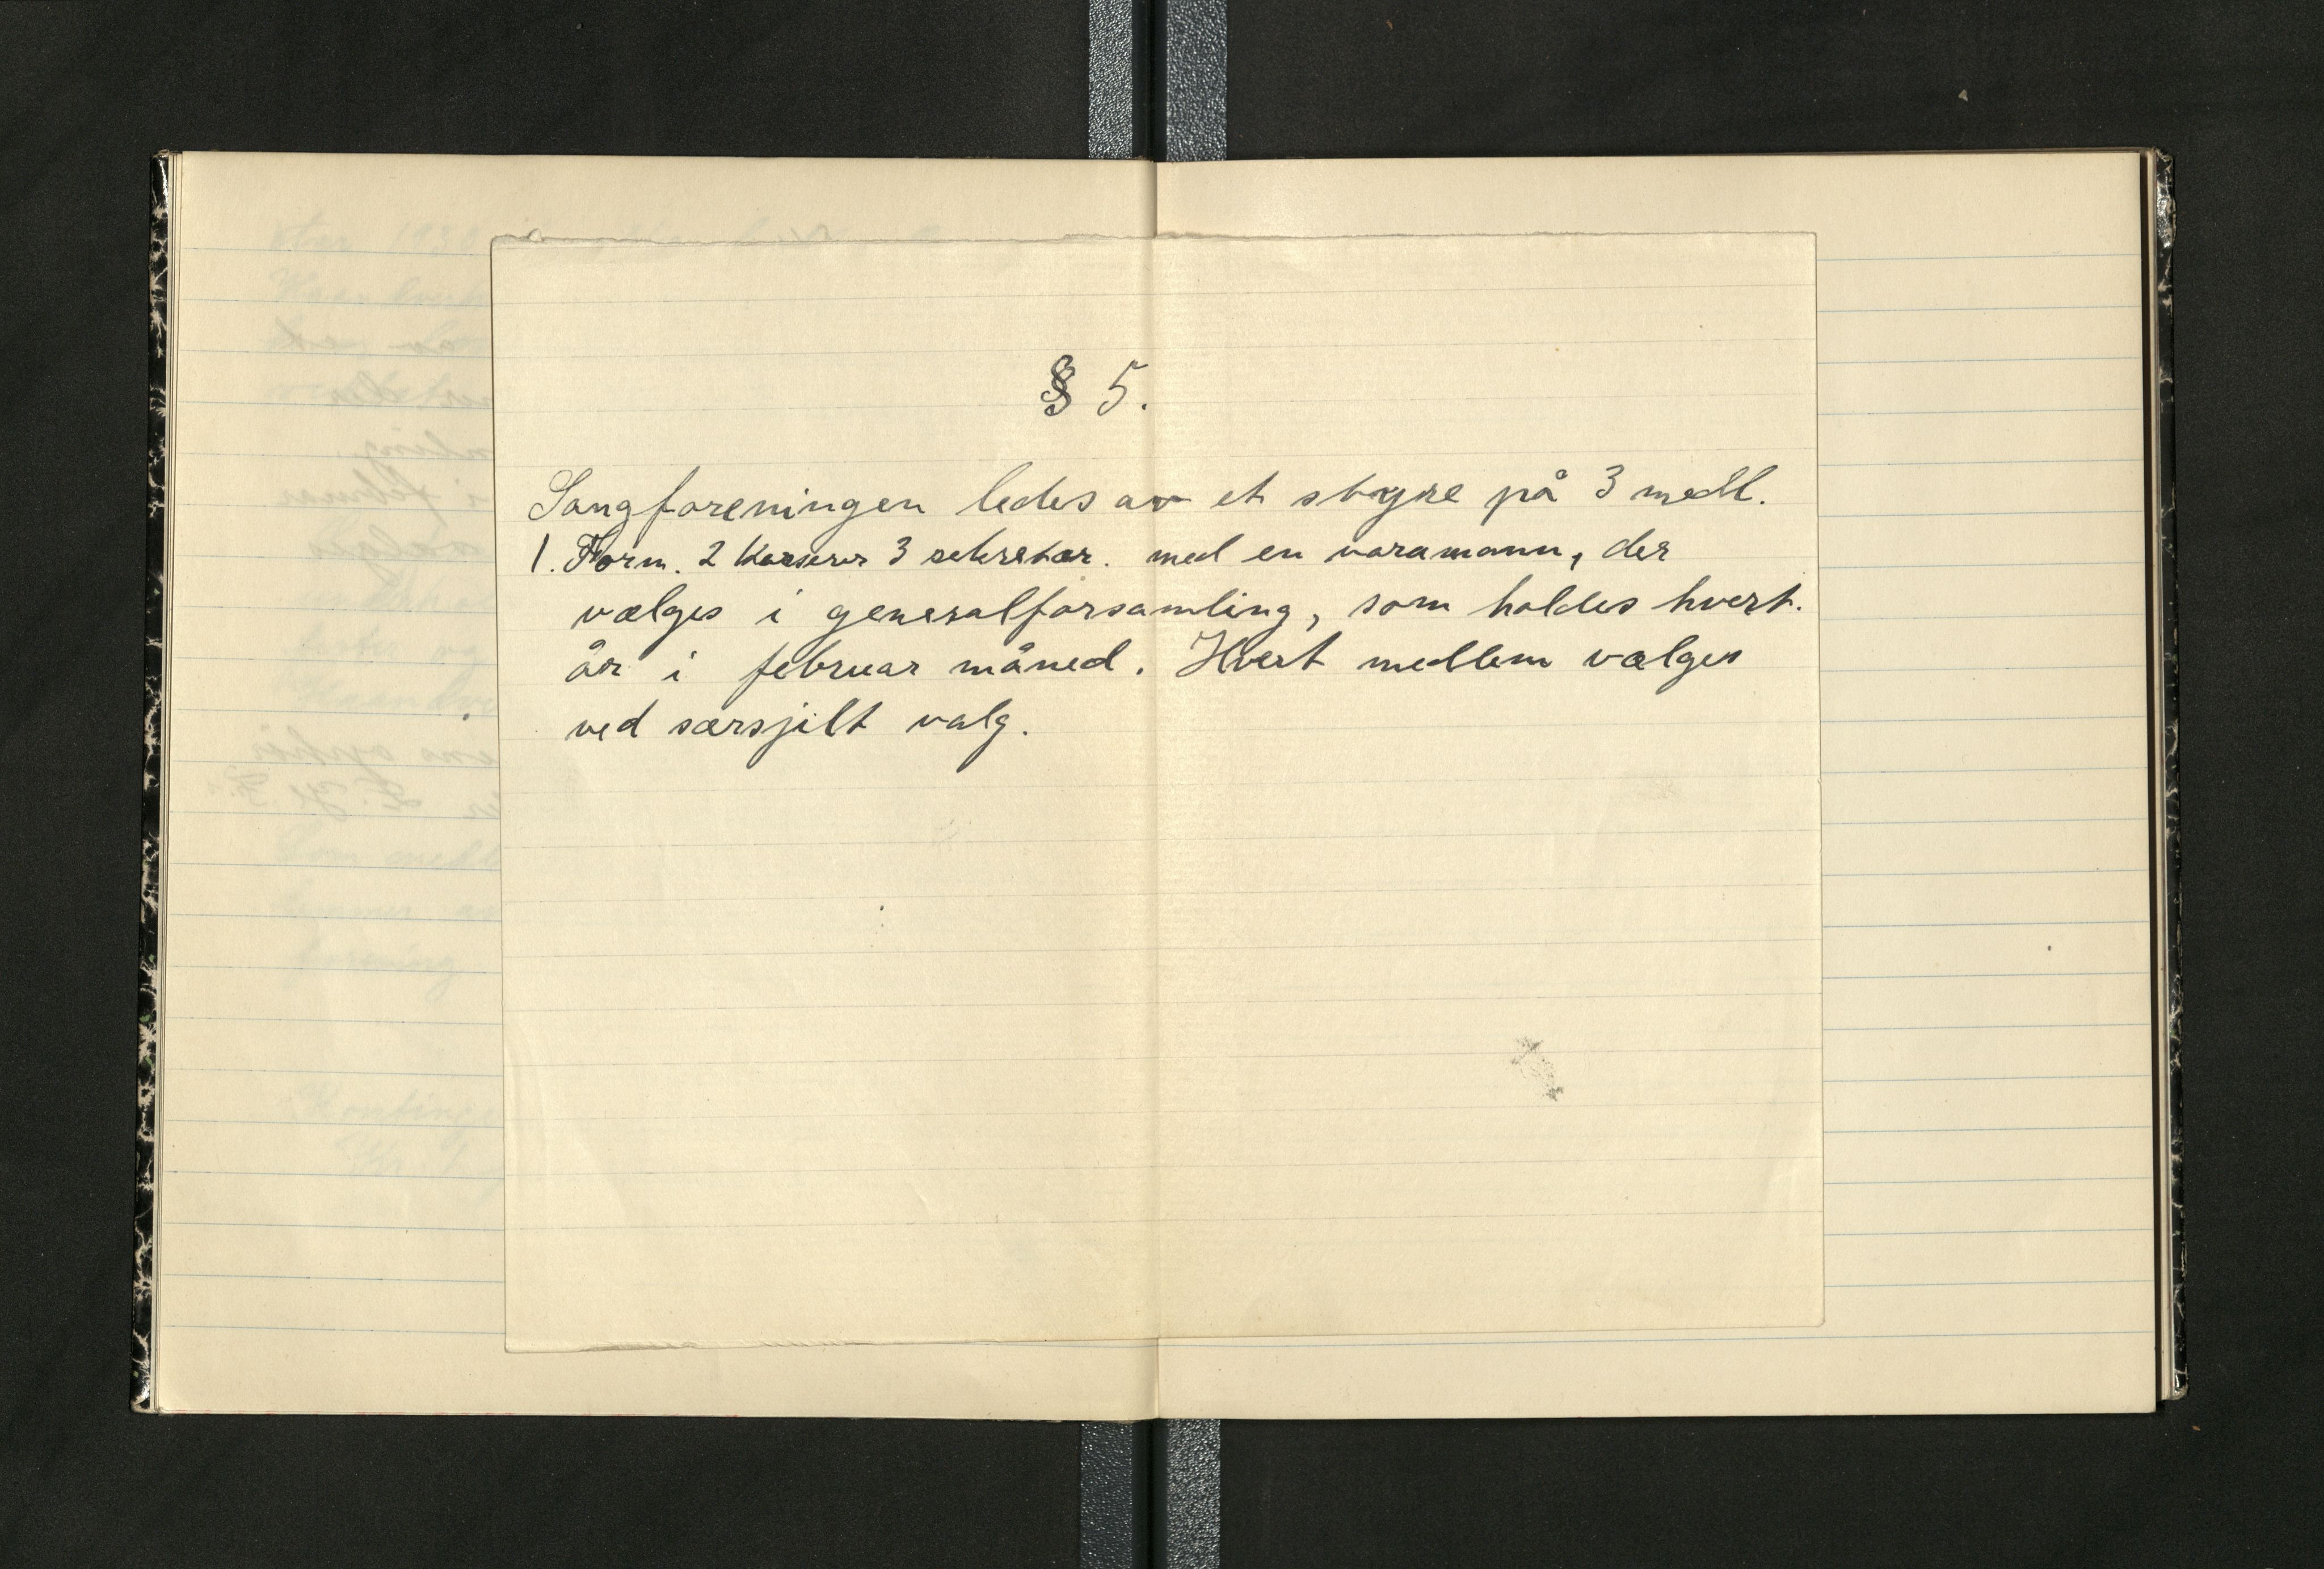 § 5.
Sangforeningen ledes av et styre på 3 medl.
1. Form. 2 Kasserer 3 sekretær. med en varamann, der
vælges i generalforsamling, som holdes hvert.
år i februar måned. Hvert medlem vælges
ved særsjilt valg.